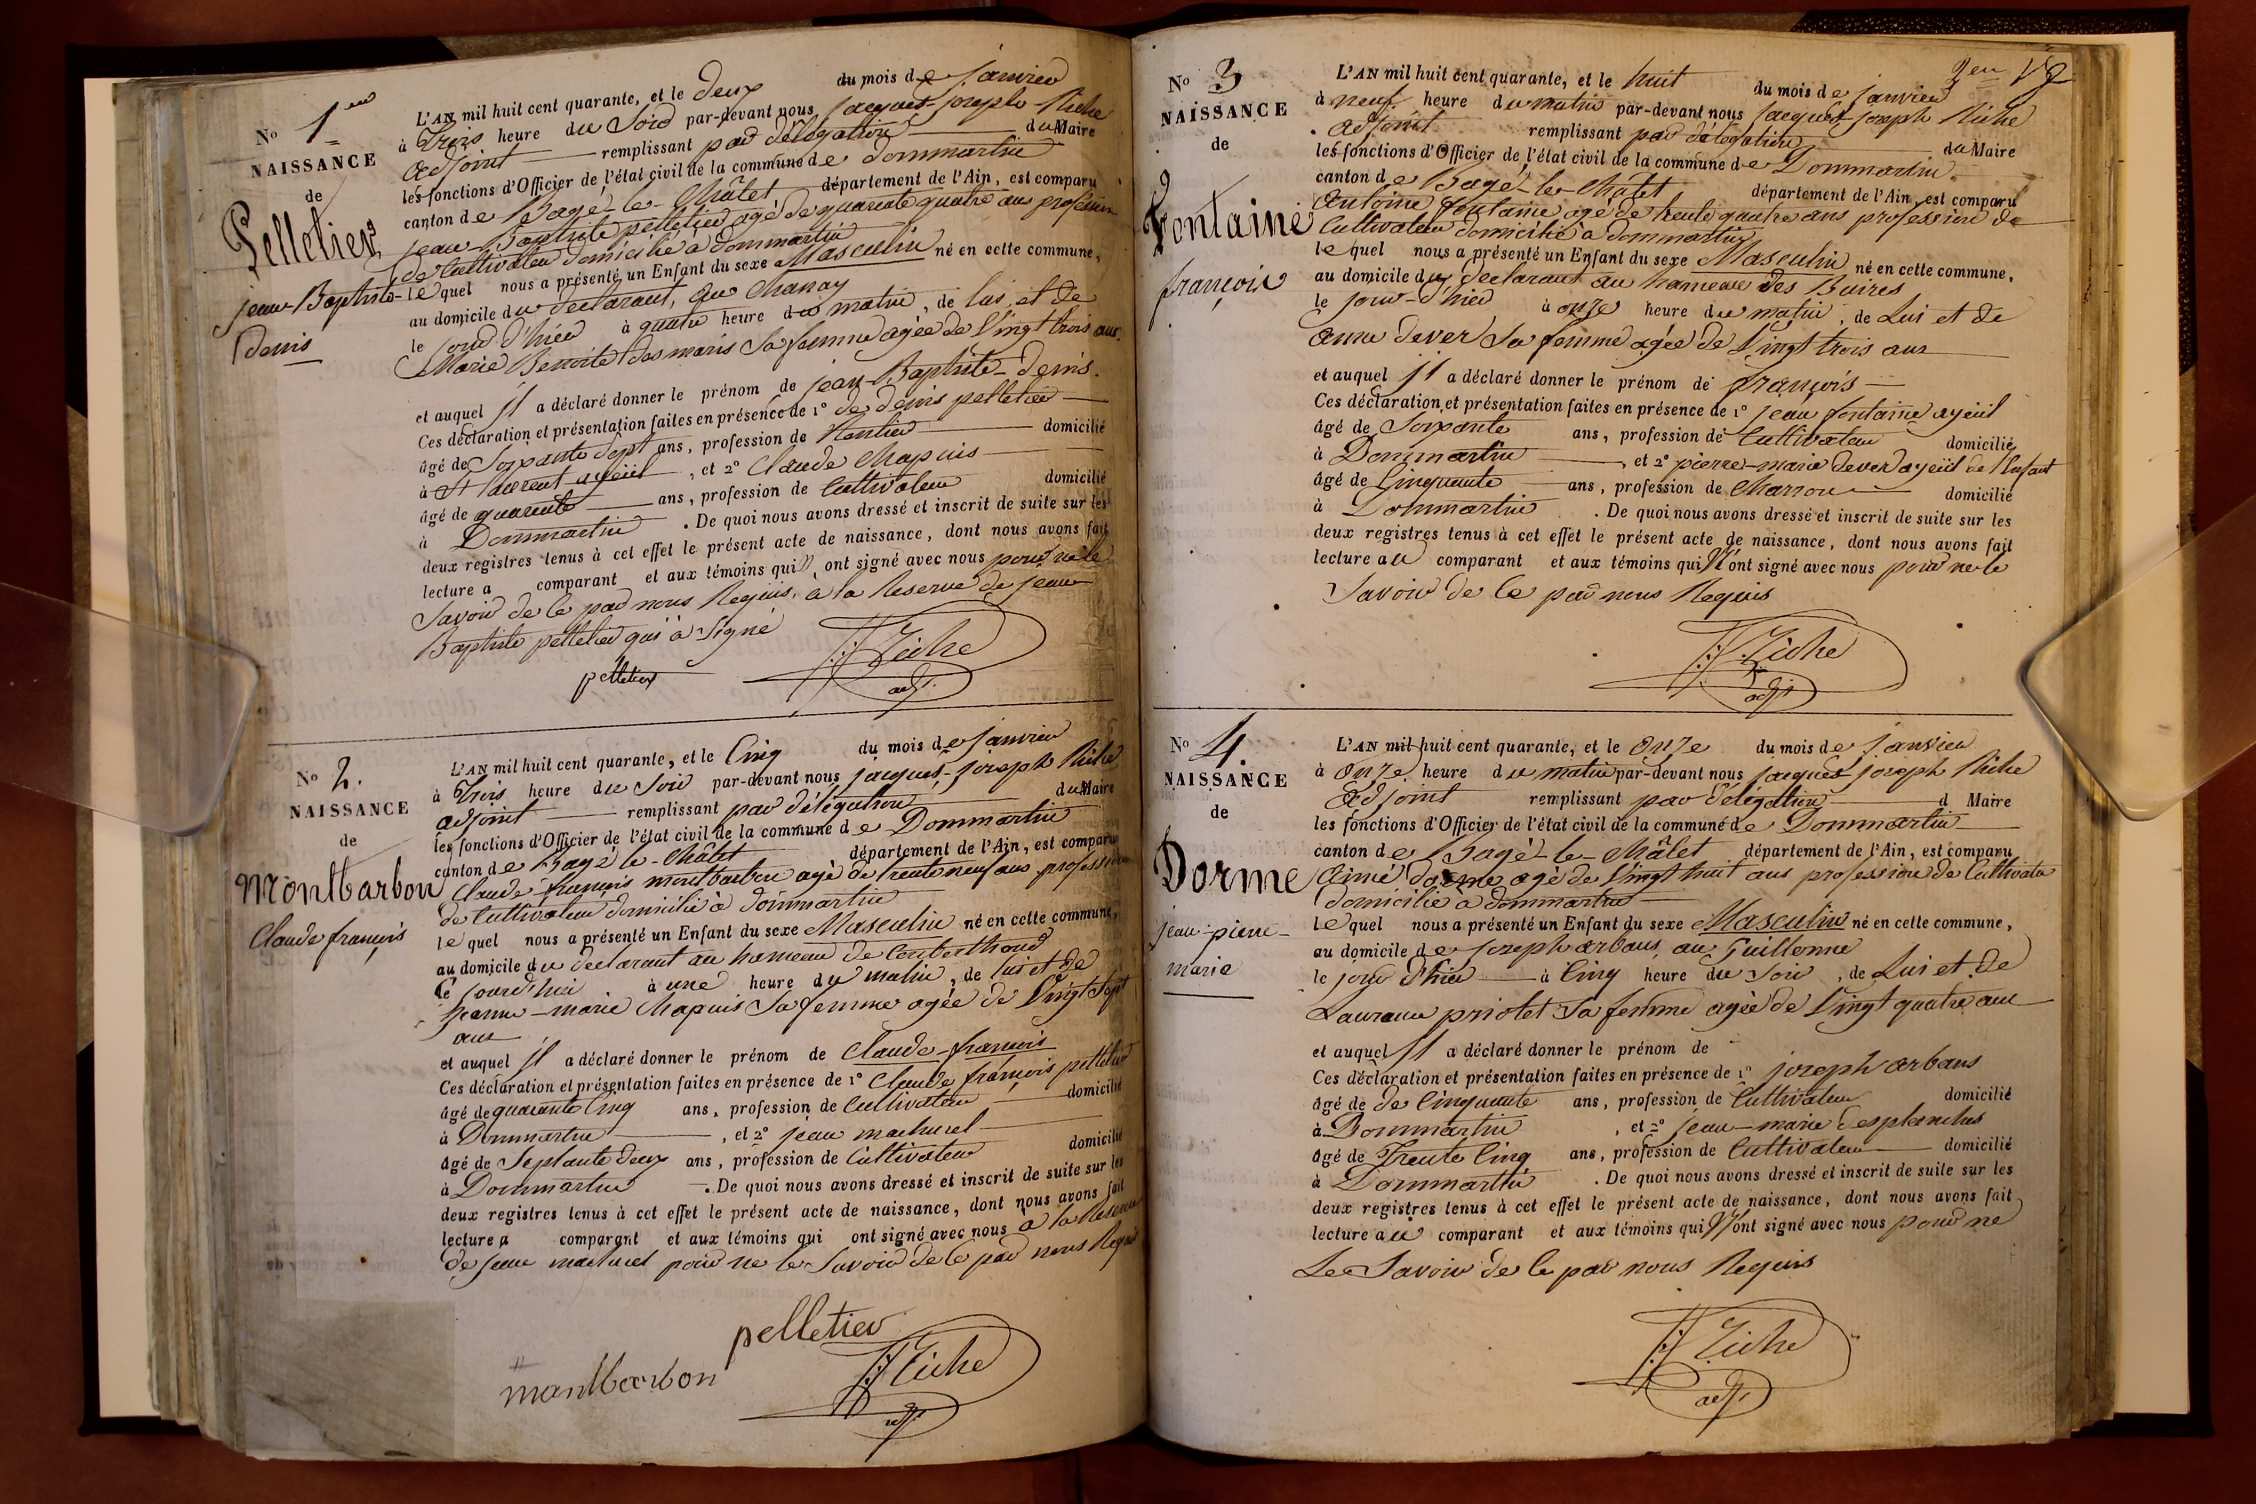 No 1er
NAISSANCE
de
Pelletier
jean-Baptiste-
denis
L'AN mil huit cent quarante, et le deux du mois de janvier
à trois heure du soir par-devant nous jacques-joseph Riche
adjoint remplissant par délégation du Maire
les fonctions d'Officier de l'état civil de la commune de dommartin
canton de Bagé-le-Châtel département de l'Ain, est comparu
jean Baptiste pelletier agé de quarante quatre ans profession
de Cultivateur domicilié a dommartin
lequel nous a présenté un Enfant du sexe Masculin né en cette commune,
au domicile du déclarant, au Chanay
le jour d'hier à quatre heure du matin, de lui et de
Marie Benoite desmaris Sa femme agée de Vingt trois ans
et auquel il a déclaré donner le prénom de jean-Baptiste-denis.
Ces déclaration et présentation faites en présence de 1° de denis pelletier
âgé de Soixante Sept ans, profession de Rentier domicilié
à St laurent ayeül, et 2° Claude Chapuis
âgé de quarente ans, profession de Cultivateur domicilié
à Dommartin. De quoi nous avons dressé et inscrit de suite sur les
deux registres tenus à cet effet le présent acte de naissance, dont nous avons fait
lecture a comparant et aux témoins qui n'ont signé avec nous pour ne le
Savoir de ce par nous Requis, à la Reserve de jean
Baptiste pelletier qui a Signé
pelletier
JJ Riche
adj.
No 2.
NAISSANCE
de
Montbarbon
Claude françois
L'AN mil huit cent quarante, et le Cinq du mois de janvier
à trois heure du Soir par-devant nous jacques-joseph Riche
adjoint remplissant par délégation du Maire
les fonctions d'Officier de l'état civil de la commune de Dommartin
canton de Bagé le-Châtel département de l'Ain, est comparu
Claude-françois montbarbon agé de trente neuf ans profession
de Cultivateur domicilié à dommartin
lequel nous a présenté un Enfant du sexe Masculin né en cette commune,
au domicile du déclarant au hameau de
le jourd'hui à une heure du matin, de lui et de
jeanne-marie Chapuis Sa femme agée de Vingt Sept
ans
et auquel il a déclaré donner le prénom de Claude-françois
Ces déclaration et présentation faites en présence de 1° Claude françois pelletier
âgé de quarante Cinq ans, profession de Cultivateur domicilié
à Dommartin, et 2° jean machurel
âgé de Septante deux ans, profession de Cultivateur domicilié
à Dommartin. De quoi nous avons dressé et inscrit de suite sur les
deux registres tenus à cet effet le présent acte de naissance, dont nous avons fait
lecture a comparant et aux témoins qui ont signé avec nous a la Reserve
de jean machurel pour ne le Savoir de ce par nous Requis
pelletier
montbarbon
JJ Riche
adj.
No 3
NAISSANCE
de
Fontaine
françois
L'AN mil huit cent quarante, et le huit du mois de janvier
à neuf heure du matin par-devant nous jacques joseph Riche
adjoint remplissant par délégation du Maire
les fonctions d'Officier de l'état civil de la commune de Dommartin
canton de Bagé-le-Châtel département de l'Ain, est comparu
antoine fontaine agé de trente quatre ans profession de
Cultivateur domicilié a dommartin
lequel nous a présenté un Enfant du sexe Masculin né en cette commune,
au domicile du déclarant au hameau des Buires
le jour-d'hier à onze heure du matin, de Lui et de
anne dever Sa femme agée de Vingt trois ans
et auquel il a déclaré donner le prénom de françois
Ces déclaration et présentation faites en présence de 1° jean fontaine ayeül
âgé de Soixante ans, profession de Cultivateur domicilié
à Dommartin, et 2° pierre-marie dever ayeül de l'enfant
âgé de Cinquante ans, profession de Charron domicilié
à Dommartin. De quoi nous avons dressé et inscrit de suite sur les
deux registres tenus à cet effet le présent acte de naissance, dont nous avons fait
lecture au comparant et aux témoins qui n'ont signé avec nous pour ne le
Savoir de ce par nous Requis
JJ Riche
adj.
No 4.
NAISSANCE
de
Dorme
jean-pierre-
marie
L'AN mil huit cent quarante, et le onze du mois de janvier
à onze heure du matin par-devant nous jacques joseph Riche
adjoint remplissant par délégation d Maire
les fonctions d'Officier de l'état civil de la commune de Dommartin
canton de Bagé-le-Châtel département de l'Ain, est comparu
aimé dorme agé de Vingt huit ans profession de Cultivateur
domicilié a dommartin
lequel nous a présenté un Enfant du sexe Masculin né en cette commune,
au domicile de joseph arbans, au Guillerme
le jour d'hier à Cinq heure du soir, de Lui et de
Laurance priolet Sa femme agée de Vingt quatre ans
et auquel il a déclaré donner le prénom de
Ces déclaration et présentation faites en présence de 1° joseph arbans
âgé de de Cinquante ans, profession de Cultivateur domicilié
à Dommartin, et 2° jean-marie desplanches
âgé de Trente Cinq ans, profession de Cultivateur domicilié
à Dommartin. De quoi nous avons dressé et inscrit de suite sur les
deux registres tenus à cet effet le présent acte de naissance, dont nous avons fait
lecture au comparant et aux témoins qui n'ont signé avec nous pour ne
Le Savoir de ce par nous Requis
JJ Riche
adj.